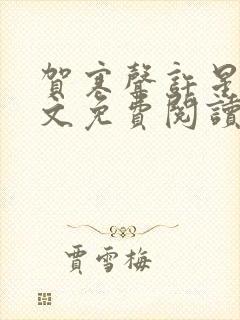 賀寒聲許星
文免費閱讀
賈雪梅